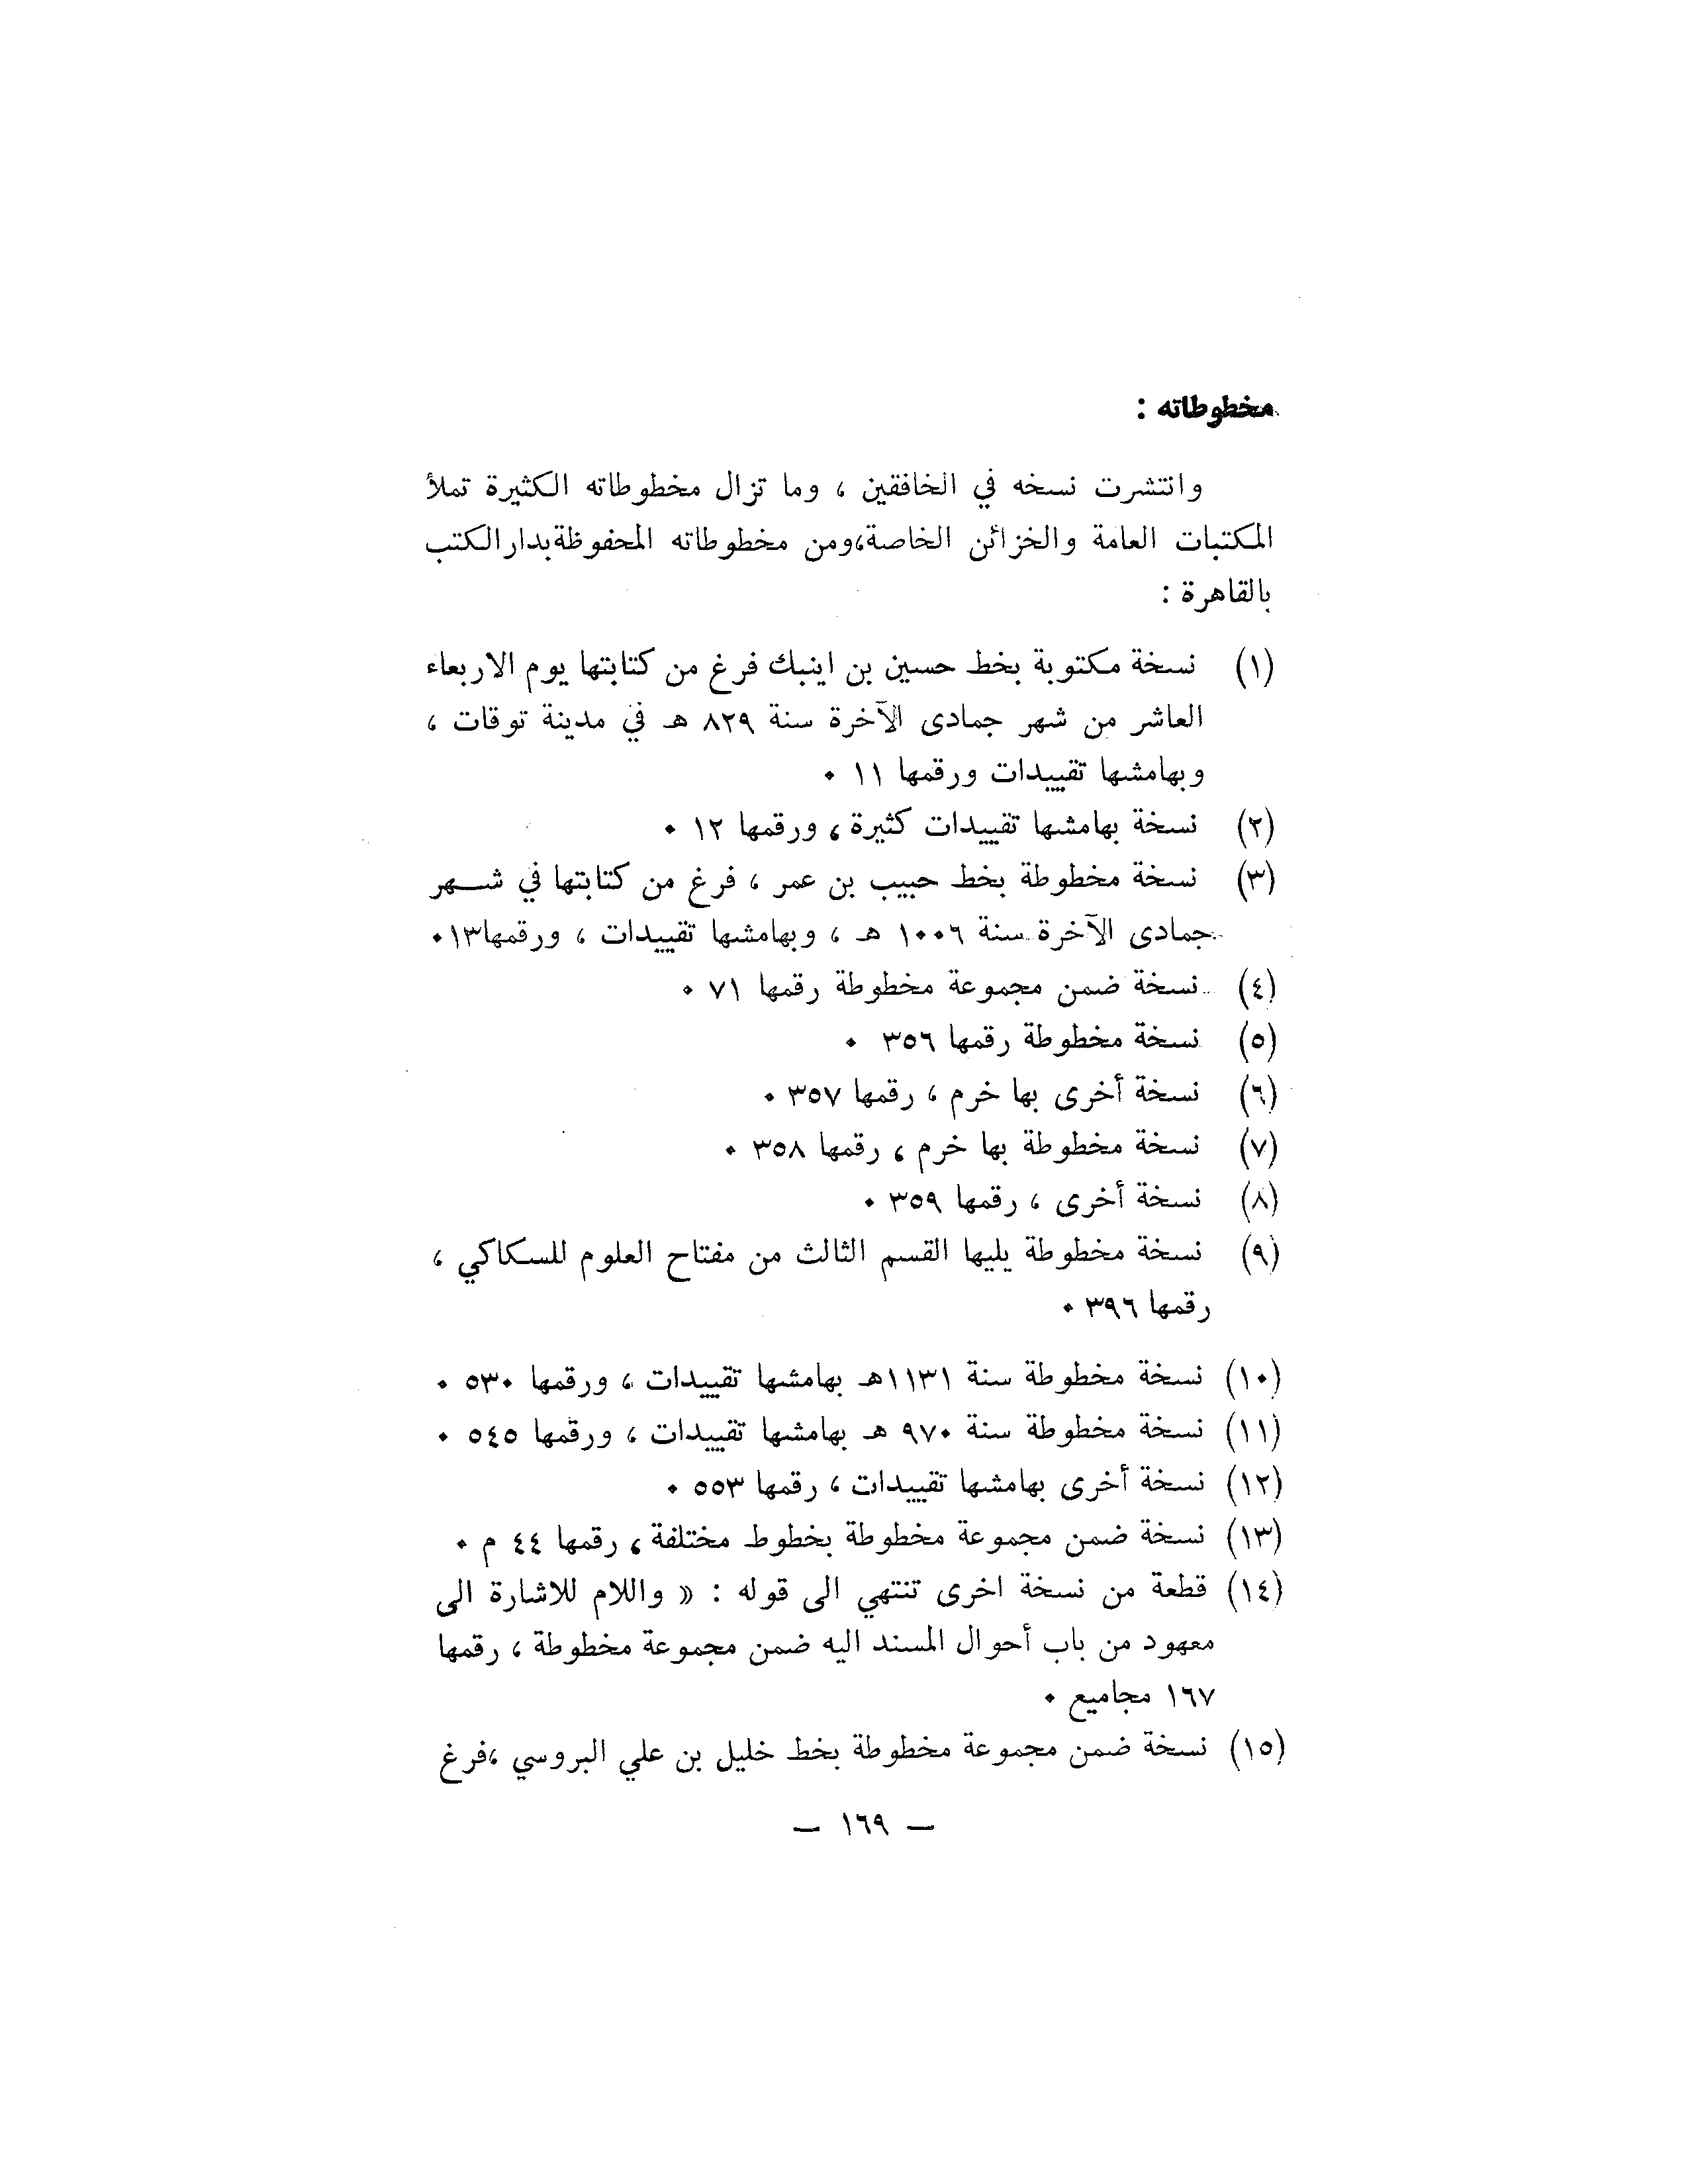 مخطوطاته :
وانتشرت نسخه في الخافقين ، وما تزال مخطوطاته الكثيرة تملأ
المكتبات العامة والخزائن الخاصة،ومن مخطوطاته المحفوظةبدارالكتب
بالقاهرة :
(١) نسخة مكتوبة بخط حسين بن اينبك فرغ من كتابتها يوم الاربعاء
العاشر من شهر جمادى الآخرة سنة ٨٢٩ هـ في مدينة توقات ،
وبهامشها تقييدات ورقمها ١١ ٠
(٢) نسخة بهامشها تقييدات كثيرة ، ورقمها ١٢ ٠
(٣) نسخة مخطوطة بخط حبيب بن عمر ، فرغ من كتابتها في شهر
جمادى الآخرة سنة ١٠٠٦ هـ ، وبهامشها تقييدات ، ورقمها١٣٠
(٤) نسخة ضمن مجموعة مخطوطة رقمها ٧١ ٠
(٥) نسخة مخطوطة رقمها ٣٥٦ ٠
(٦) نسخة أخرى بها خرم ، رقمها ٣٥٧ ٠
(٧) نسخة مخطوطة بها خرم ، رقمها ٣٥٨ ٠
(٨) نسخة أخرى ، رقمها ٣٥٩ ٠
(٩) نسخة مخطوطة يليها القسم الثالث من مفتاح العلوم للسكاكي ،
رقمها ٣٩٦ ٠
(١٠) نسخة مخطوطة سنة ١١٣١هـ بهامشها تقييدات ، ورقمها ٥٣٠ ٠
(١١) نسخة مخطوطة سنة ٩٧٠ هـ بهامشها تقييدات ، ورقمها ٥٤٥ ٠
(١٢) نسخة أخرى بهامشها تقييدات ، رقمها ٥٥٣ ٠
(١٣) نسخة ضمن مجموعة مخطوطة بخطوط مختلفة ، رقمها ٤٤ م ٠
(١٤) قطعة من نسخة اخرى تنتهي الى قوله : « واللام للاشارة الى
معهود من باب أحوال المسند اليه ضمن مجموعة مخطوطة ، رقمها
١٦٧ مجاميع ٠
(١٥) نسخة ضمن مجموعة مخطوطة بخط خليل بن علي البروسي ،فرغ
— ١٦٩ —